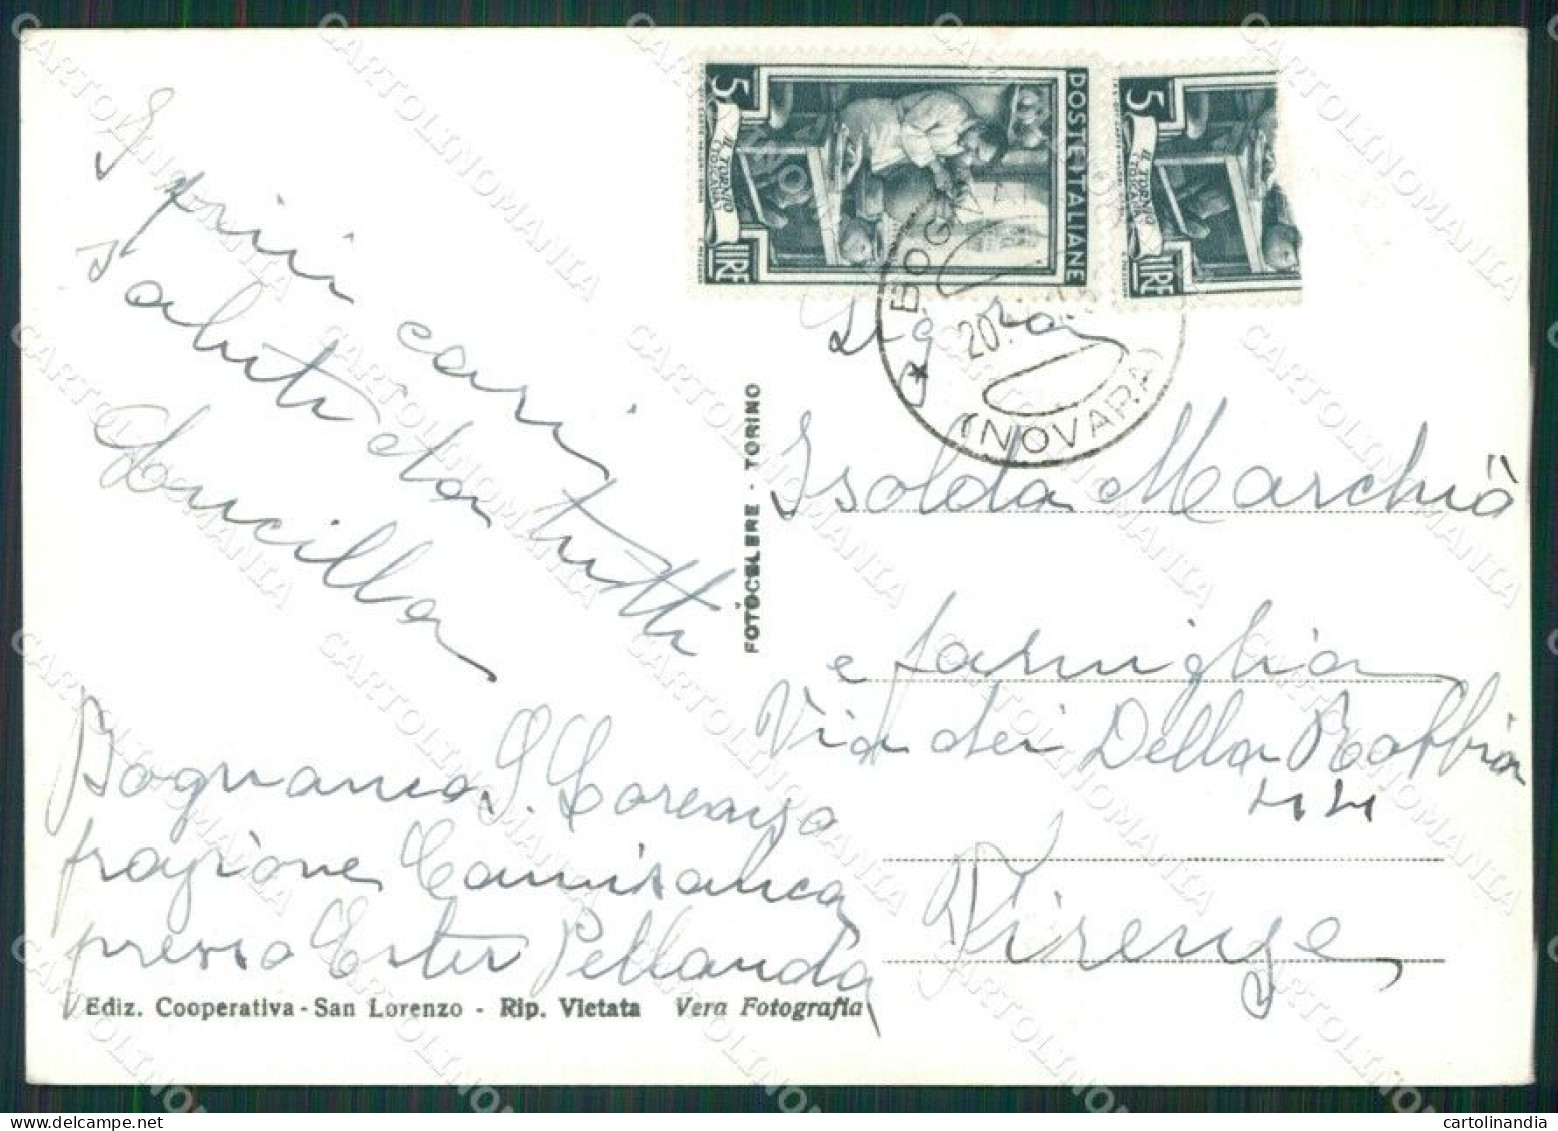 I primi cari
saluti da tutti
Lucilla
Bognanco S. Lorenzo
frazione Camisanca
presso Ester Pellanda
Ediz. Cooperativa - San Lorenzo - Rip. Vietata Vera Fotografia
FOTOCELERE - TORINO
5 LIRE
POSTE ITALIANE
IL TORNIO
5 LIRE
IL TORNIO
BOGNAN
20.
(NOVARA)
Sig.ra
Isolda Marchiò
e famiglia
Via dei Della Robbia
Firenze
CARTOLINOMANIA
cartolinandia